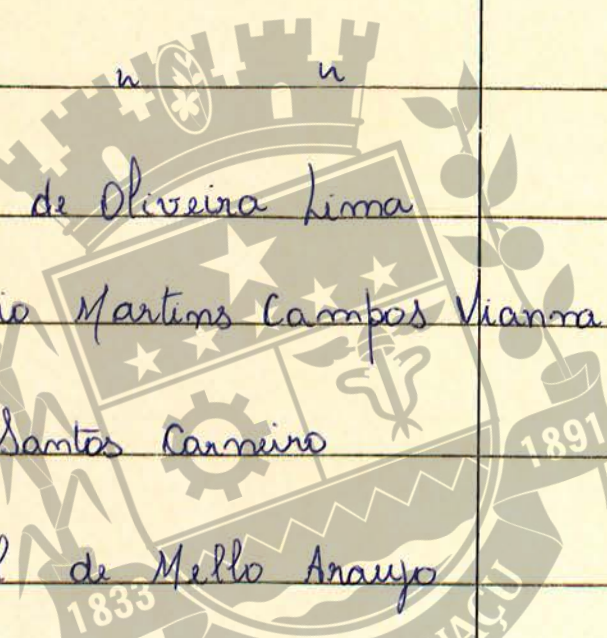 " "
de Oliveira Lima
io Martins Campos Vianna
Santos Carneiro
l de Mello Araujo
1891
1833
AÇU